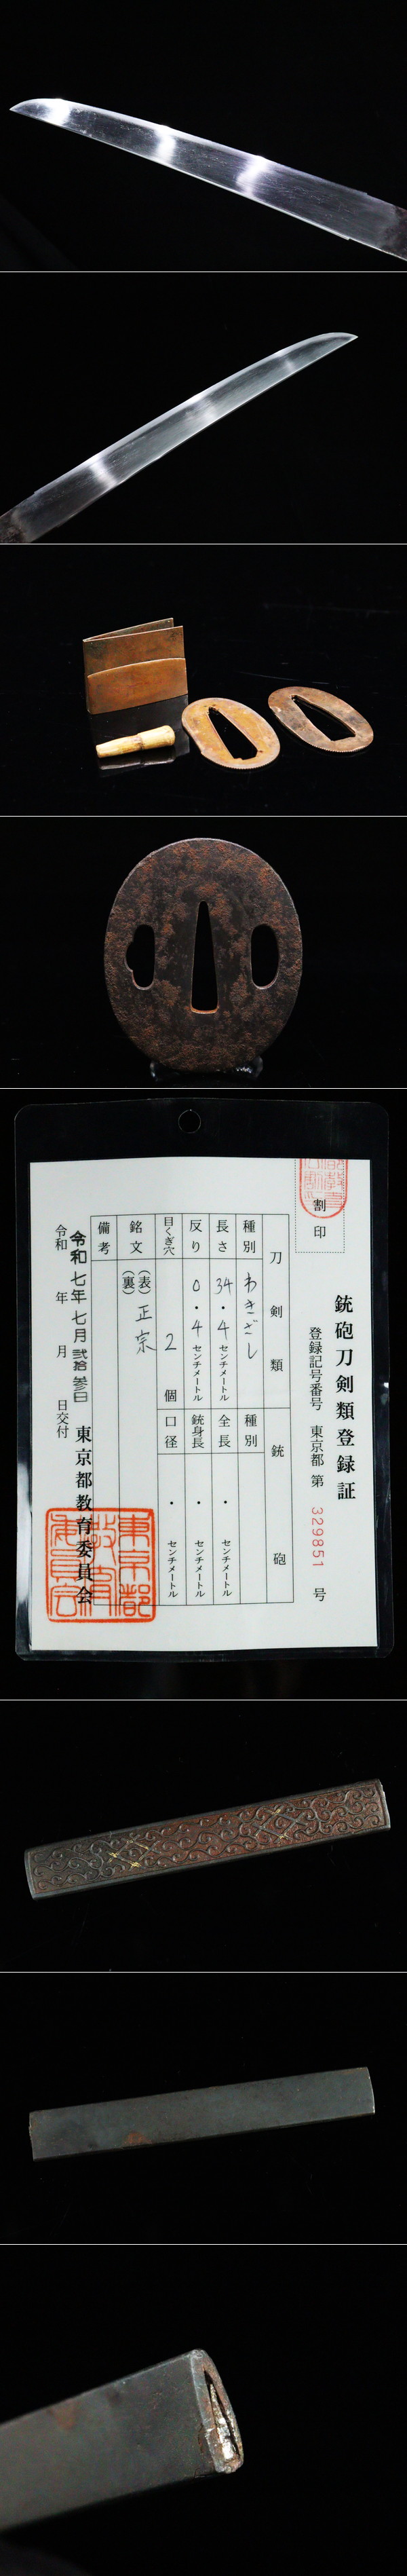 銃砲刀剣類登録証
登録記号番号 東京都 第 329851 号
割印
刀剣類
種別 わきざし
長さ 34.4センチメートル
反り 0.4センチメートル
目くぎ穴 2 個
銘文 (表) 正宗
(裏)
備考
銃砲
種別
全長 ・ センチメートル
銃身長 ・ センチメートル
口径 ・ センチメートル
令和七年七月弐拾参日
令和 年 月 日交付
東京都教育委員会
東京都教育委員会